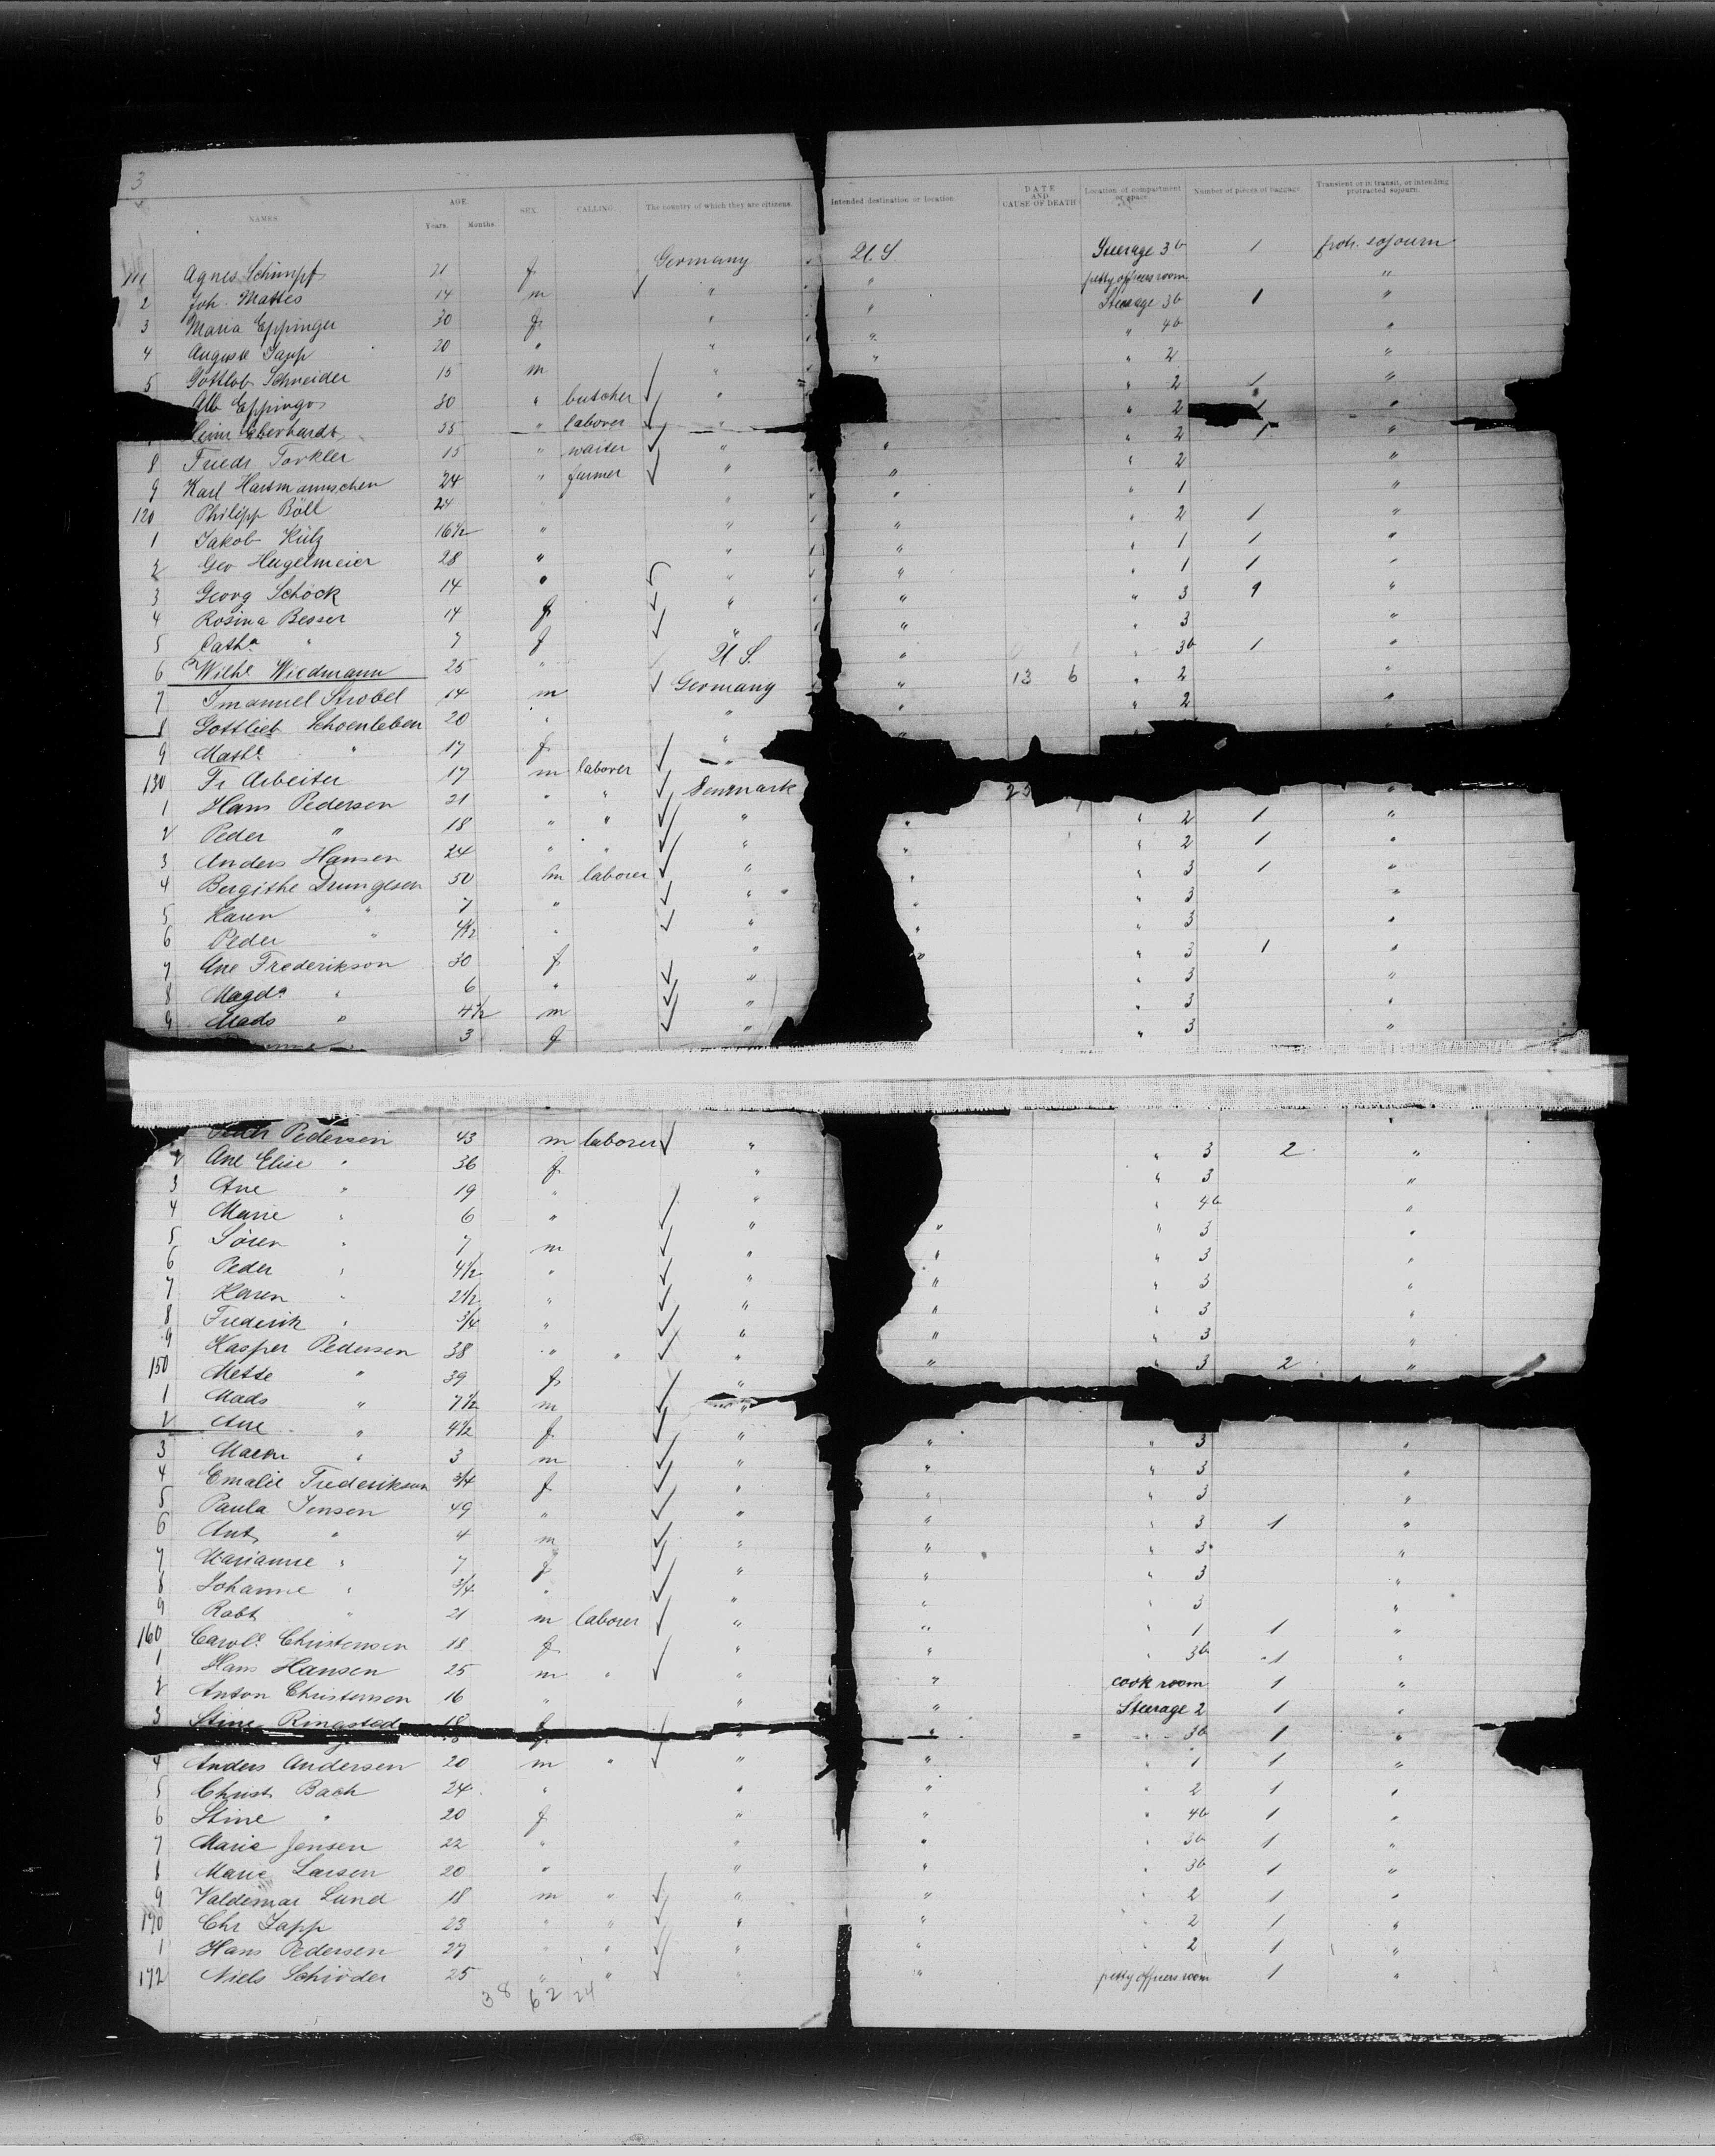 3
NAMES. AGE. Years. Months. SEX. CALLING. The country of which they are citizens. Intended destination or location. DATE AND CAUSE OF DEATH Location of compartment or space. Number of pieces of baggage Transient or in transit, or intending protracted sojourn.
111 Agnes Schimpf 21 f Germany U.S. Steerage 3b 1 protr. sojourn
2 Joh. Mattes 14 m " " petty officers room "
3 Maria Eppinger 30 f " " Steerage 3b 1 "
4 Auguste Japp 20 " " " " 4b "
5 Gottlob Schneider 15 m " " " 2 "
Alb Eppinger 30 " butcher " " 2 1 "
Heinr Eberhardt 35 " laborer " " 2 1 "
8 Friedr 15 " waiter " " " 2 1 "
9 Karl Hartmannschen 24 " farmer " " " 2 "
120 Philipp Böll 24 " " " " 1 "
1 Jakob Külz 16 1/2 " " " " 2 1 "
2 Geo Hugelmeier 28 " " " " 1 1 "
3 Georg Schöck 14 " " " " 1 1 "
4 Rosina Besser 14 f " " " 3 1 "
5 Cathª " 7 f " " " 3 "
6 Wilhe Wiedmann 25 " U.S. " " 3b 1 "
7 Imanuel Strobel 14 m Germany " 13 6 " 2 "
8 Gottlieb Schoenleben 20 " " " " 2 "
9 Mathe " 17 f " " "
130 Fr Arbeiter 17 m laborer "
1 Hans Pedersen 21 " " Denmark "
2 Peder " 18 " " " " " 2 1 "
3 Anders Hansen 24 " " " " " 2 1 "
4 Bergithe 50 m laborer " " " 3 1 "
5 Karen " 7 " " " " 3 "
6 Peder " 4 1/2 " " " " 3 "
7 Ane Frederikson 30 f " " " 3 1 "
8 Magdª " 6 " " " 3 "
9 Mads " 4 1/2 m " " 3 "
3 f " " 3 "
Pedersen 43 m laborer " " 3 2 "
2 Ane Elise " 36 f " " 3 "
3 Ane " 19 " " " 4b "
4 Marie " 6 " " " " 3 "
5 Sören " 7 m " " " 3 "
6 Peder " 4 1/2 " " " " 3 "
7 Karen " 2 1/2 " " " " 3 "
8 Frederik " 3/4 " " " " 3 "
9 Kasper Pedersen 38 " " " " " 3 2 "
150 Mette " 39 f "
1 Mads " 7 1/2 m "
2 Ane " 4 1/2 f " " " 3 "
3 Maren " 3 m " " " 3 "
4 Emalie Frederikson 3/4 f " " " 3 "
5 Paula Jensen 49 " " " " 3 1 "
6 Ant " 4 m " " " 3 "
7 Marianne " 7 f " " " 3 "
8 Johanne " 3/4 " " " " 3 "
9 Robt " 21 m laborer " " " 1 1 "
160 Carole Christensen 18 f " " " 3b 1 "
1 Hans Hansen 25 m " " " cook room 1 "
2 Anton Christensen 16 " " " Steerage 2 1 "
3 Stine Ringsted 18 f " " " 3b 1 "
4 Anders Andersen 20 m " " " " 1 1 "
5 Christ Bach 24 " " " " 2 1 "
6 Stine " 20 f " " " 4b 1 "
7 Marie Jensen 22 " " " " 3b 1 "
8 Marie Larsen 20 " " " " 3b 1 "
9 Valdemar Lund 18 m " " " " 2 1 "
170 Chr Japp 23 " " " " " 2 1 "
1 Hans Pedersen 27 " " " " " 2 1 "
172 Niels Schröder 25 " " " " petty officers room 1 "
38 62 24